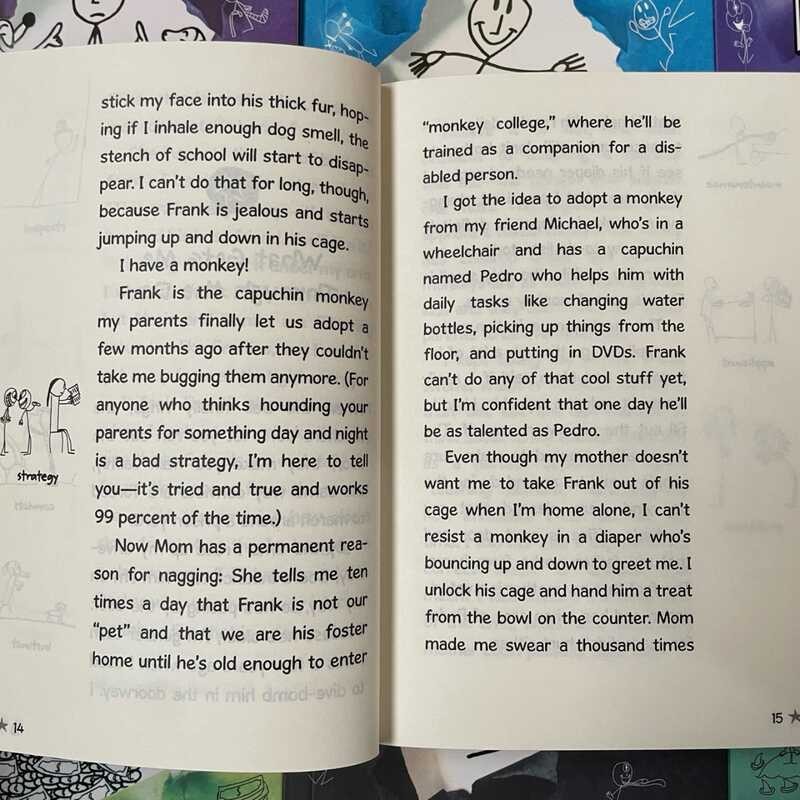 stick my face into his thick fur, hop-
ing if I inhale enough dog smell, the
stench of school will start to disap-
pear. I can't do that for long, though,
because Frank is jealous and starts
jumping up and down in his cage.
I have a monkey!
Frank is the capuchin monkey
my parents finally let us adopt a
few months ago after they couldn't
take me bugging them anymore. (For
anyone who thinks hounding your
parents for something day and night
is a bad strategy, I'm here to tell
you—it's tried and true and works
99 percent of the time.)
Now Mom has a permanent rea-
son for nagging: She tells me ten
times a day that Frank is not our
"pet" and that we are his foster
home until he's old enough to enter
strategy
14
"monkey college," where he'll be
trained as a companion for a dis-
abled person.
I got the idea to adopt a monkey
from my friend Michael, who's in a
wheelchair and has a capuchin
named Pedro who helps him with
daily tasks like changing water
bottles, picking up things from the
floor, and putting in DVDs. Frank
can't do any of that cool stuff yet,
but I'm confident that one day he'll
be as talented as Pedro.
Even though my mother doesn't
want me to take Frank out of his
cage when I'm home alone, I can't
resist a monkey in a diaper who's
bouncing up and down to greet me. I
unlock his cage and hand him a treat
from the bowl on the counter. Mom
made me swear a thousand times
15